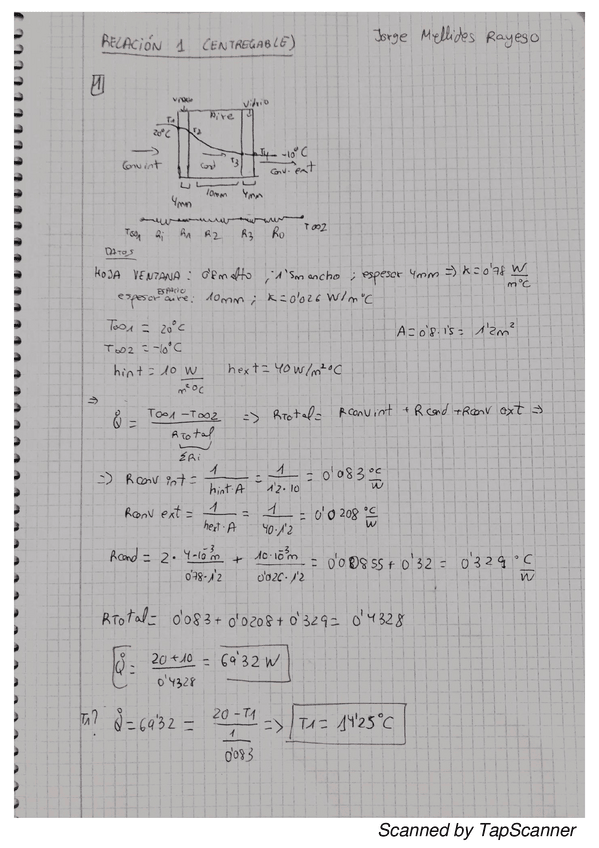 RELACIÓN 1 (ENTREGABLE)
Jorge Mellides Rayego
1
vidrio Aire vidrio
T1 T2 T3 T4
20°C -10°C
Conv int cond conv. ext
4mm 10mm 4mm
T∞1 Ri R1 R2 R3 R0 T∞2
DATOS
HOJA VENTANA: 0'8m alto ; 1'5m ancho ; espesor 4mm => K=0'78 W/m°C
espesor ESPACIO aire: 10mm ; K=0'026 W/m°C
T∞1 = 20°C
A=0'8·1'5= 1'2m²
T∞2 = -10°C
hint = 10 W/m²°C hext = 40 W/m²°C
=> Q̇ = (T∞1 - T∞2)/RTotal => RTotal = Rconv int + Rcond + Rconv ext =>
ΣRi
=> Rconv int = 1/(hint·A) = 1/(1'2·10) = 0'083 °C/W
Rconv ext = 1/(hext·A) = 1/(40·1'2) = 0'0208 °C/W
Rcond = 2· (4·10⁻³m)/(0'78·1'2) + (10·10⁻³m)/(0'026·1'2) = 0'00855 + 0'32 = 0'329 °C/W
RTotal = 0'083 + 0'0208 + 0'329 = 0'4328
Q̇ = (20+10)/0'4328 = 69'32 W
T1? Q̇ = 69'32 = (20-T1)/(1/0'083) => T1 = 14'25°C
Scanned by TapScanner